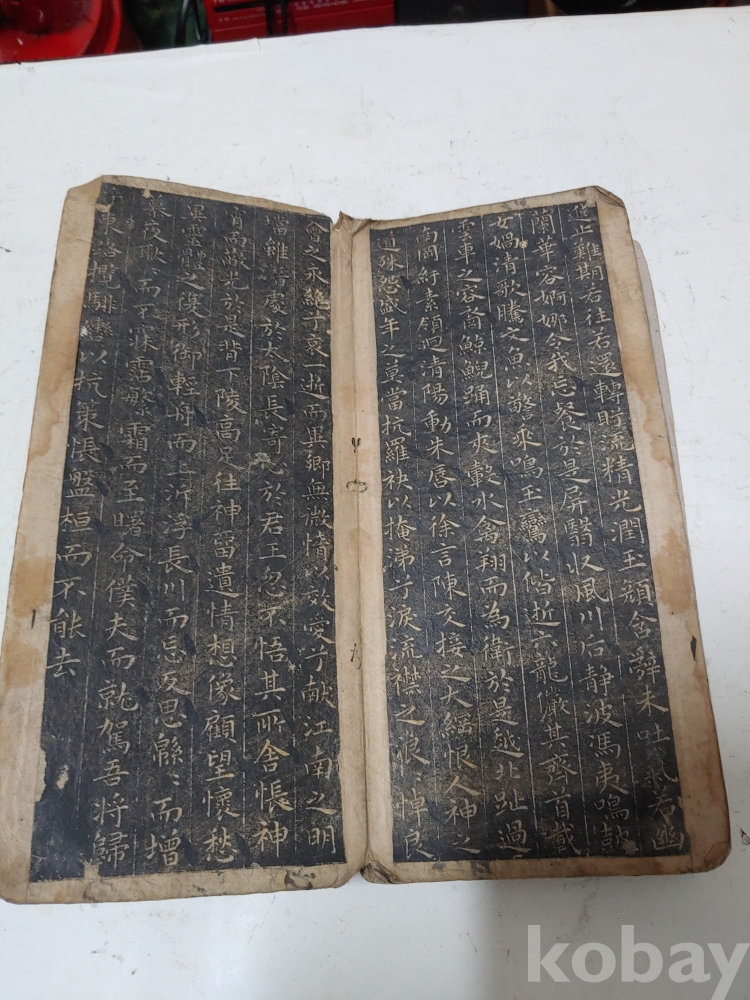 進止難期若往若還轉眄流精光潤玉顏含辭未吐氣若幽
蘭華容婀娜令我忘餐於是屏翳收風川后静波馮夷鳴鼓
女媧清歌騰文魚以警乘鳴玉鸞以偕逝六龍儼其齊首載
雲車之容裔鯨鯢踊而夾轂水禽翔而為衛於是越北沚過
南岡紆素領迴清陽動朱唇以徐言陳交接之大綱恨人神之
道殊怨盛年之莫當抗羅袂以掩涕兮淚流襟之浪〻悼良
會之永絕兮哀一逝而異鄉無微情以效愛兮献江南之明
璫雖潛處於太陰長寄心於君王忽不悟其所舍悵神
宵而蔽光於是背下陵高足往神留遺情想像顧望懷愁
冀靈體之復形御輕舟而上泝浮長川而忘反思緜〻而增
慕夜耿〻而不寐霑繁霜而至曙命僕夫而就駕吾將歸
東路攬騑轡以抗策悵盤桓而不能去
kobay